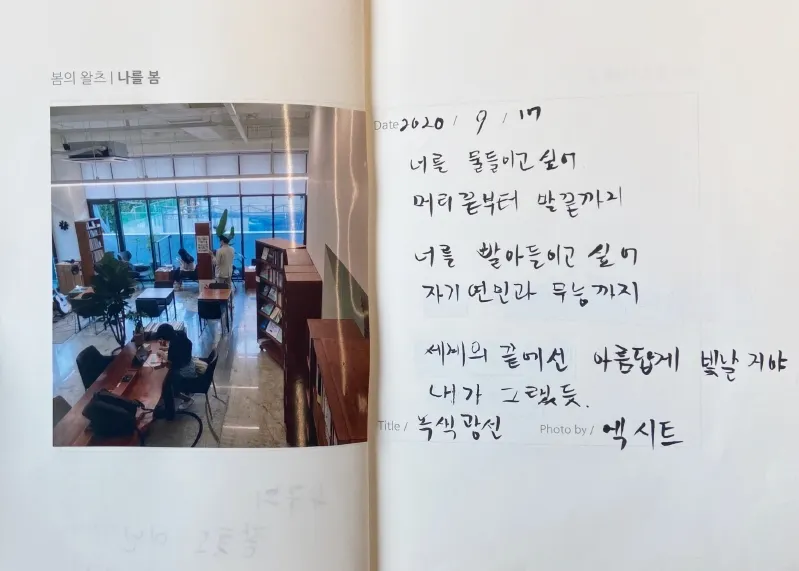 봄의 왈츠 | 나를 봄
Date 2020 / 9 / 17
너를 물들이고 싶어
머리끝부터 발끝까지
너를 빨아들이고 싶어
자기연민과 무능까지
세계의 끝에선 아름답게 빛날 거야
내가 그랬듯.
Title / 녹색광선 Photo by / 엑시트